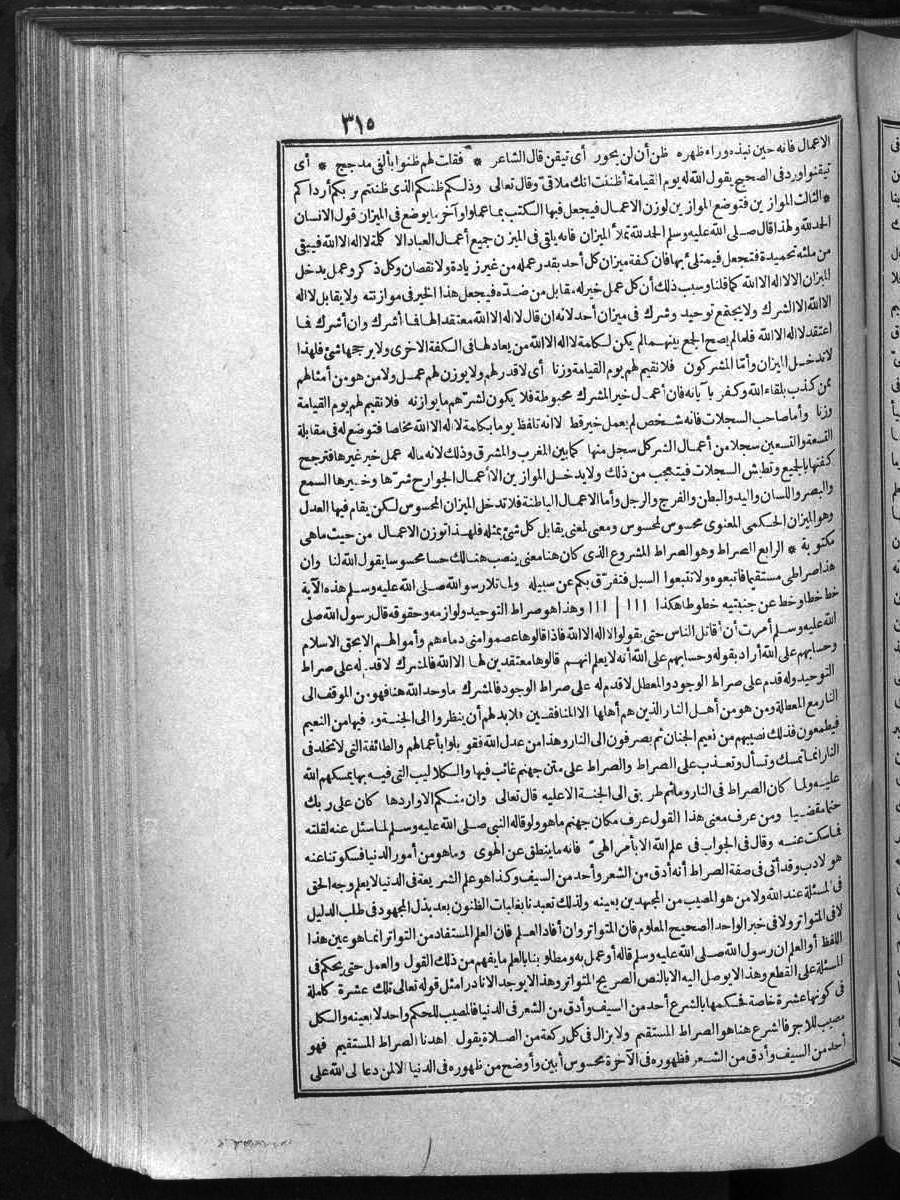 ٣١٥
الاعمال فانه حين نبذه وراء ظهره ظن أن لن يحور أى تيقن قال الشاعر * فقلت لهم ظنوا بألفى مدجج * أى
تيقنوا ورد فى الصحيح يقول الله له يوم القيامة أظننت انك ملاقىّ وقال تعالى وذلكم ظنكم الذى ظننتم بربكم أرداكم
* الثالث الموازين فتوضع الموازين لوزن الاعمال فيجعل فيها الكتب بما عملوا وآخر ما يوضع فى الميزان قول الانسان
الحمد لله ولهذا قال صلى الله عليه وسلم الحمد لله تملأ الميزان فانه يلقى فى الميزان جميع أعمال العباد الا كلمة لااله الاالله فيبقى
من ملئه تحميدة فتجعل فيمتلئ بها فان كفة ميزان كل أحد بقدر عمله من غير زيادة ولا نقصان وكل ذكر وعمل يدخل
الميزان الا لااله الاالله كما قلنا وسبب ذلك أن كل عمل خير له مقابل من ضده فيجعل هذا الخير فى موازنته ولا يقابل لااله
الاالله الاالشرك ولا يجتمع توحيد وشرك فى ميزان أحد لانه ان قال لااله الاالله معتقدا لها فما أشرك وان أشرك فما
اعتقد لااله الاالله فلما لم يصح الجمع بينهما لم يكن لكلمة لااله الاالله من يعادلها فى الكفة الاخرى ولا يرجحها شئ فلهذا
لا تدخل الميزان وأما المشركون فلا نقيم لهم يوم القيامة وزنا أى لا قدر لهم ولا يوزن لهم عمل ولا من هو من أمثالهم
ممن كذب بلقاء الله وكفر بآياته فان أعمال خير المشرك محبوطة فلا يكون لشرهم ما يوازنه فلا نقيم لهم يوم القيامة
وزنا وأما صاحب السجلات فانه شخص لم يعمل خيرا قط الا انه تلفظ يوما بكلمة لااله الاالله مخلصا فتوضع له فى مقابلة
التسعة والتسعين سجلا من أعمال الشر كل سجل منها كما بين المغرب والمشرق وذلك لانه ماله عمل خير غيرها فترجح
كفتها بالجميع وتطيش السجلات فيتعجب من ذلك ولا يدخل الموازين الا أعمال الجوارح شرها وخيرها السمع
والبصر واللسان واليد والبطن والفرج والرجل وأما الاعمال الباطنة فلا تدخل الميزان المحسوس لكن يقام فيها العدل
وهو الميزان الحكمى المعنوى محسوس لمحسوس ومعنى لمعنى يقابل كل شئ بمثله فلهذا توزن الاعمال من حيث ماهى
مكتوبة * الرابع الصراط وهو الصراط المشروع الذى كان هنا معنى ينصب هنالك حسا محسوسا يقول الله لنا وان
هذا صراطى مستقيما فاتبعوه ولا تتبعوا السبل فتفرّق بكم عن سبيله ولما تلا رسول الله صلى الله عليه وسلم هذه الآية
خط خطا وخط عن جنبتيه خطوطا هكذا ااا | ااا وهذا هو صراط التوحيد ولوازمه وحقوقه قال رسول الله صلى
الله عليه وسلم أمرت أن أقاتل الناس حتى يقولوا لااله الاالله فاذا قالوها عصموا منى دماءهم وأموالهم الا بحق الاسلام
وحسابهم على الله أراد بقوله وحسابهم على الله أنه لا يعلم انهم قالوها معتقدين لها الاالله فالمشرك لا قدم له على صراط
التوحيد وله قدم على صراط الوجود والمعطل لا قدم له على صراط الوجود فالمشرك ما وحد الله هنا فهو من الموقف الى
النار مع المعطلة ومن هو من أهل النار الذين هم أهلها الا المنافقين فلا بد لهم أن ينظروا الى الجنة وما فيها من النعيم
فيطمعون فذلك نصيبهم من نعيم الجنان ثم يصرفون الى النار وهذا من عدل الله فقوبلوا بأعمالهم والطائفة التى لا تخلد فى
النار انما تمسك وتسأل وتعذب على الصراط والصراط على متن جهنم غائب فيها والكلاليب التى فيه بها يمسكهم الله
عليه ولما كان الصراط فى النار وما ثم طريق الى الجنة الا عليه قال تعالى وان منكم الا واردها كان على ربك
حتما مقضيا ومن عرف معنى هذا القول عرف مكان جهنم ما هو ولو قاله النبى صلى الله عليه وسلم لما سئل عنه لقلته
فما سكت عنه وقال فى الجواب فى علم الله الا بأمر الهىّ فانه ما ينطق عن الهوى وما هو من أمور الدنيا فسكوتنا عنه
هو الادب وقد أتى فى صفة الصراط أنه أدق من الشعر وأحد من السيف وكذا هو علم الشريعة فى الدنيا لا يعلم وجه الحق
فى المسئلة عند الله ولا من هو المصيب من المجتهدين بعينه ولذلك تعبدنا بغلبات الظنون بعد بذل المجهود فى طلب الدليل
لا فى المتواتر ولا فى خبر الواحد الصحيح المعلوم فان المتواتر وان أفاد العلم فان العلم المستفاد من التواتر انما هو عين هذا
اللفظ أو العلم ان رسول الله صلى الله عليه وسلم قاله أو عمل به ومطلوبنا بالعلم ما يفهم من ذلك القول والعمل حتى يحكم فى
المسئلة على القطع وهذا لا يوصل اليه الا بالنص الصريح المتواتر وهذا لا يوجد الا نادرا مثل قوله تعالى تلك عشرة كاملة
فى كونها عشرة خاصة فحكمها بالشرع أحد من السيف وأدق من الشعر فى الدنيا فالمصيب للحكم واحد لا بعينه والكل
مصيب للاجر فالشرع هنا هو الصراط المستقيم ولا يزال فى كل ركعة من الصلاة يقول اهدنا الصراط المستقيم فهو
أحد من السيف وأدق من الشعر فظهوره فى الآخرة محسوس أبين وأوضح من ظهوره فى الدنيا الا لمن دعا الى الله على